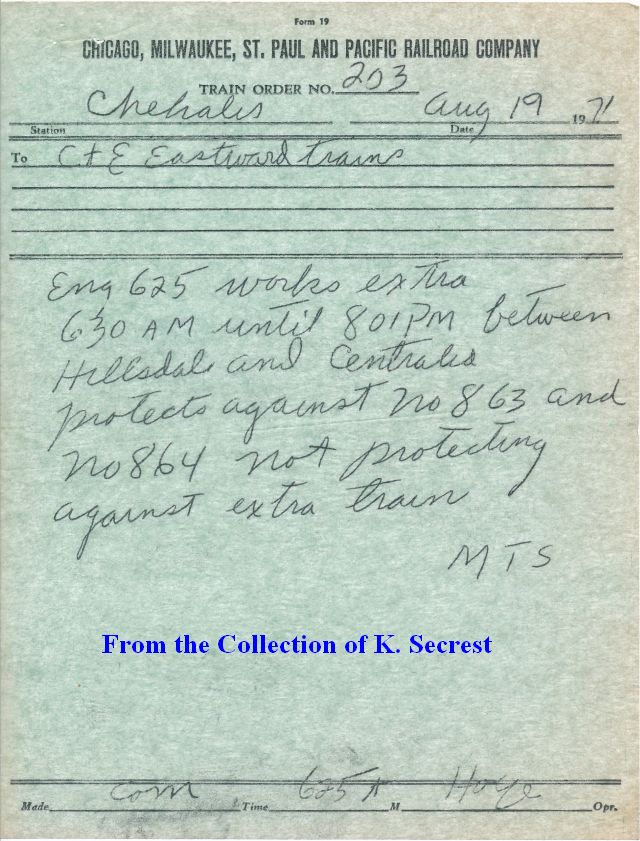 Form 19
CHICAGO, MILWAUKEE, ST. PAUL AND PACIFIC RAILROAD COMPANY
TRAIN ORDER NO. 203
Chehalis Aug 19 1971
Station Date
To C+E Eastward trains
Eng 625 works extra
630 AM until 801PM between
Hillsdale and Centralia
protects against No 863 and
No 864 not protecting
against extra train
MTS
From the Collection of K. Secrest
Made com Time 625 A M Hoye Opr.